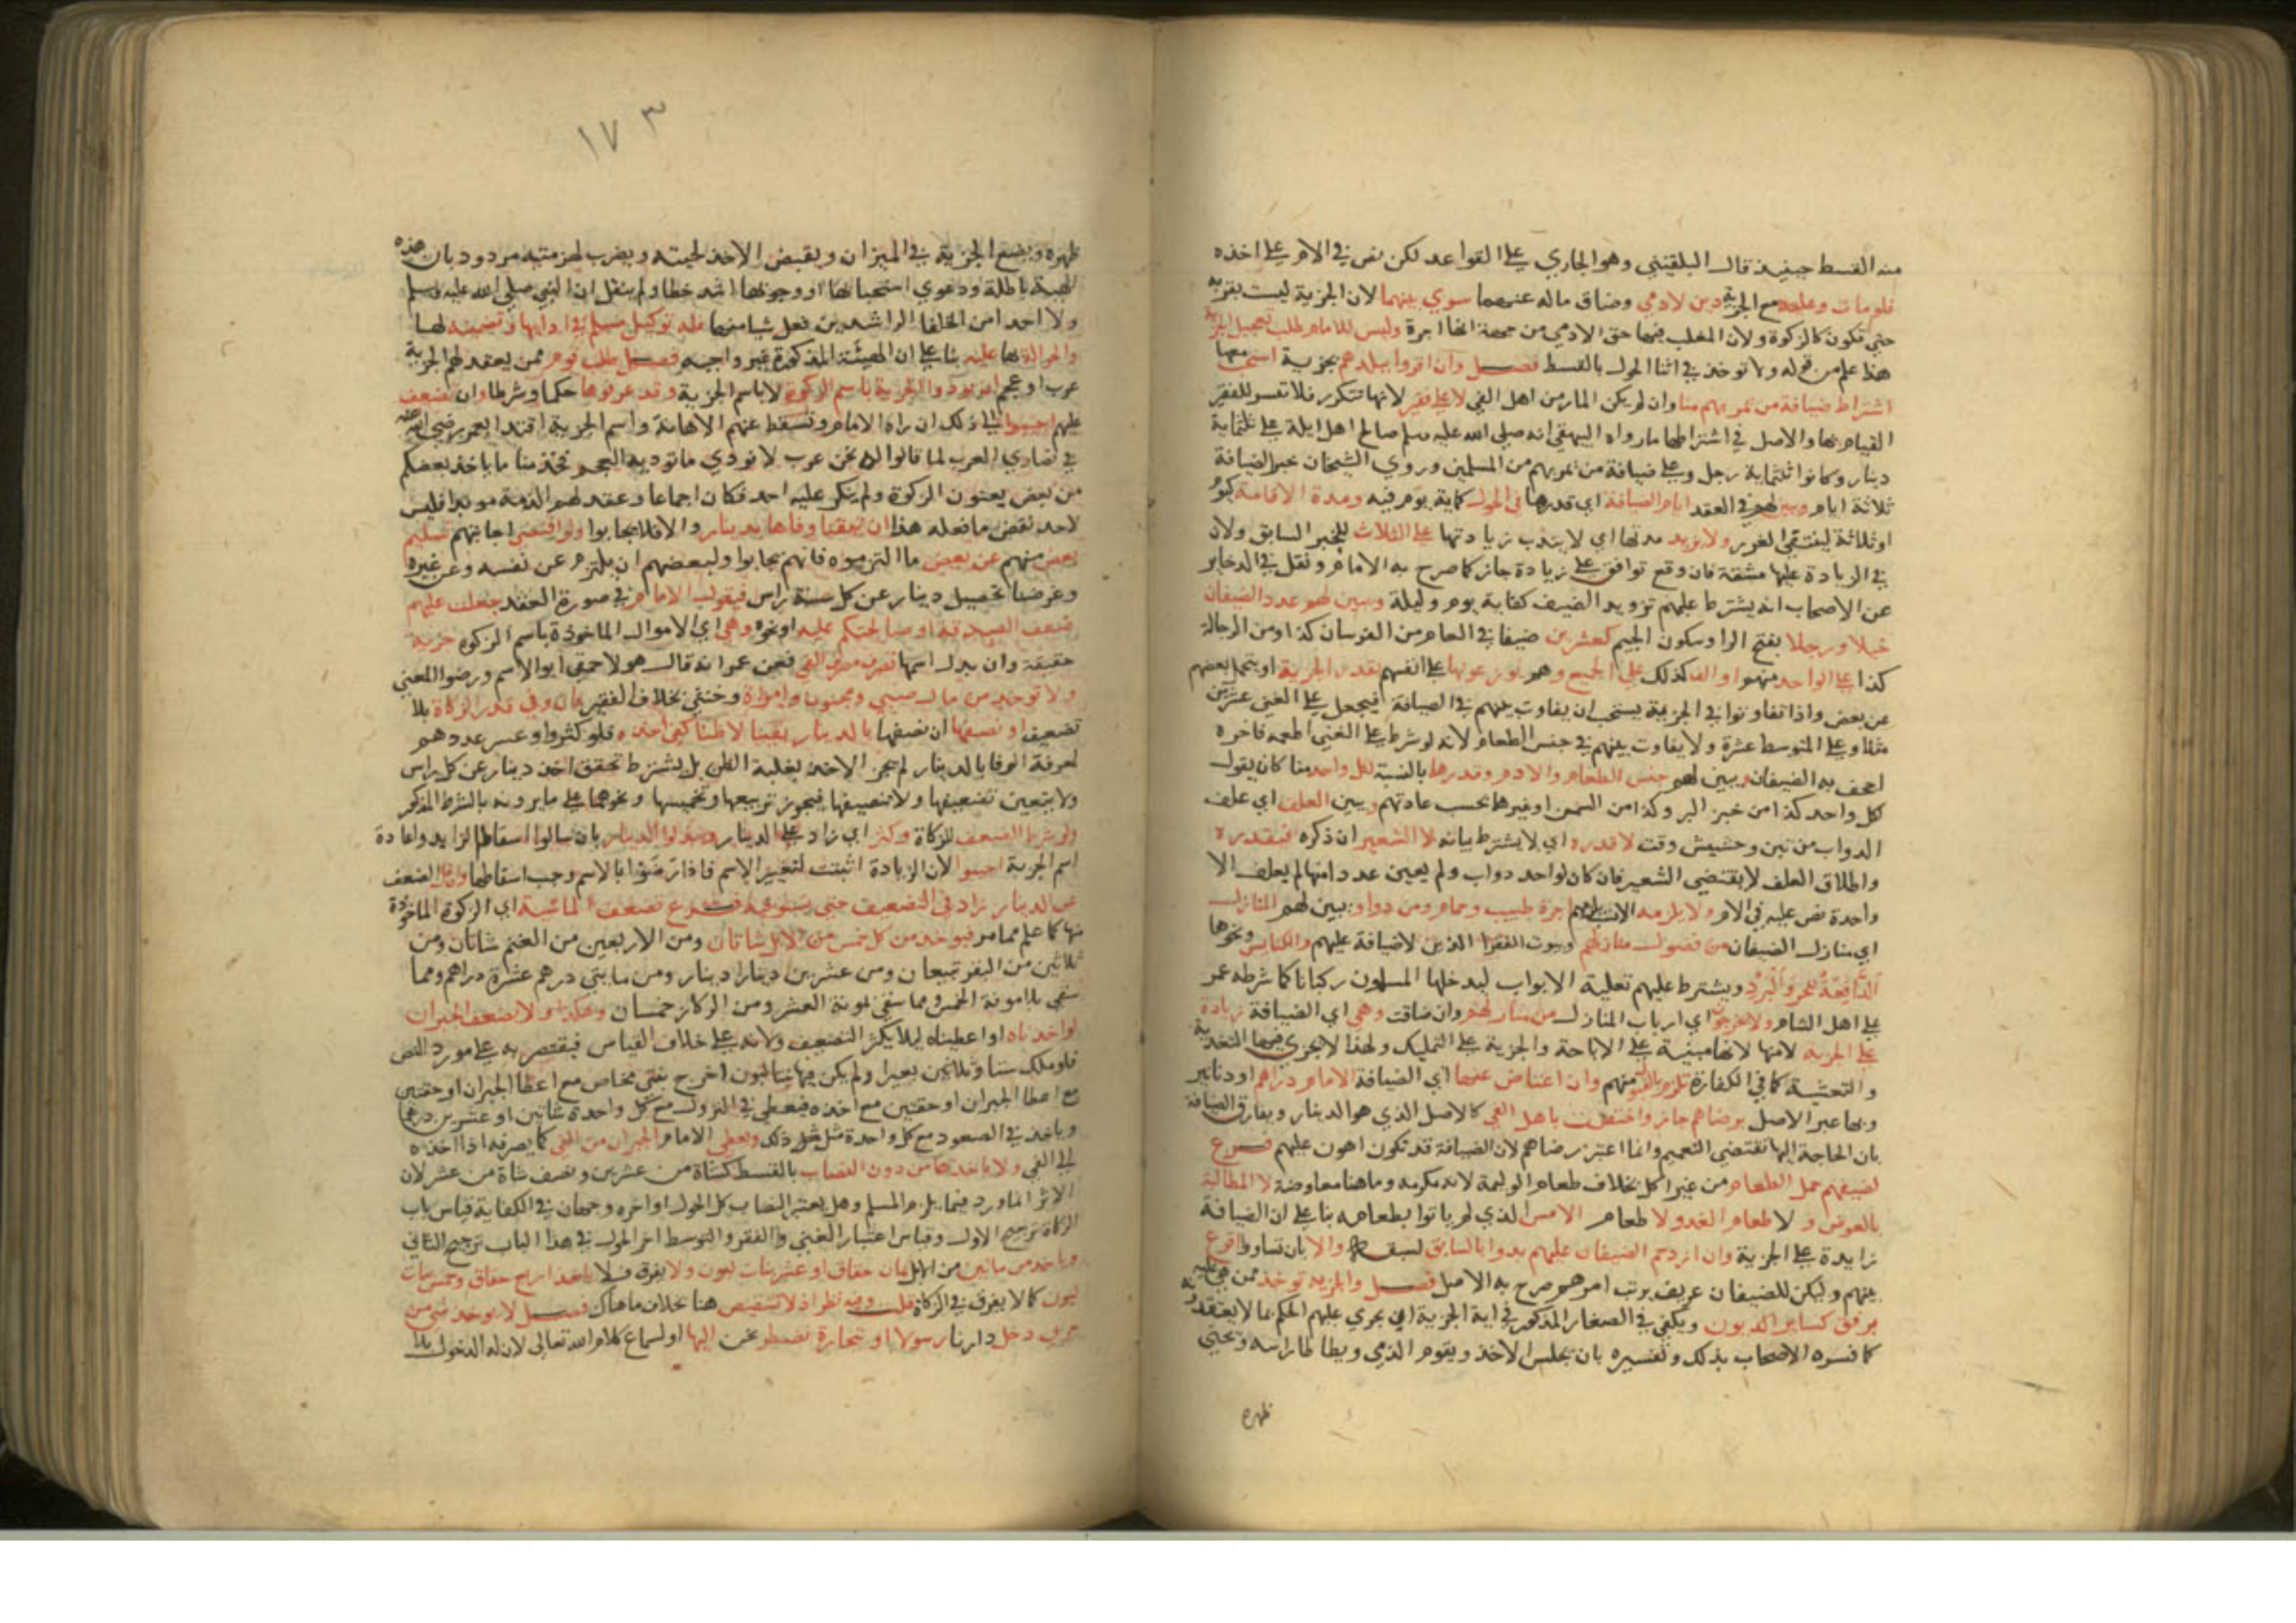 منه القسط حينيذ قال البلقيني وهو الجاري على القواعد لكن نص في الام على اخذه
فلو مات وعليه مع الجزية دين لادمي وضاق ماله عنهما سوي بينهما لان الجزية ليست بقربه
حتي تكون كالزكوة ولان المغلب فيها حق الادمي من جهة انها اجرة وليس للامام طلب تعجيل الجزية
هذا علم من قوله ولا توخذ في اثنا الحول بالقسط فصل وان اقروا ببلدهم بجزية استحب معها
اشتراط ضيافة من يمر بهم منا وان لم يكن المار من اهل الفي لا على فقير لانها تتكرر فلا تتيسر للفقير
القيام بها والاصل في اشتراطها ما رواه البيهقي انه صلى الله عليه وسلم صالح اهل ايلة على ثلثماية
دينار وكانوا ثلثماية رجل وعلى ضيافة من يمر بهم من المسلمين وروي الشيخان خبر الضيافة
ثلاثة ايام وبين لهم في العقد ايام الضيافة اي قدرها في الحول كماية يوم فيه ومدة الاقامة كيوم
او ثلاثة لينتفي الغرر ولا يزيد مدتها اي لا يندب زيادتها على الثلاث للخبر السابق ولان
في الزيادة عليها مشقة فان وقع توافق على زيادة جاز كما صرح به الامام ونقل في الدخاير
عن الاصحاب انه يشترط عليهم تزويد الضيف كفاية يوم وليلة وبين لهم عدد الضيفان
خيلا ورجلا بفتح الرا وسكون الجيم كعشرين ضيفا في العام من الفرسان كذا ومن الرجالة
كذا على الواحد منهم او الف كذلك على الجميع وهم يوزعونها على انفسهم بقدر الجزية او يتحمل بعضهم
عن بعض واذا تفاوتوا في الجزية يستحب ان يفاوت بينهم في الضيافة فيجعل على الغني عشرين
مثلا وعلى المتوسط عشرة ولا يفاوت بينهم في جنس الطعام لانه لو شرط على الغني اطعمه فاخره
اجحف به الضيفان وبين لهم جنس الطعام والادم وقدرها بالنسبة لكل واحد منا كان يقول
لكل واحد كذا من خبز البر وكذا من السمن او غيرها بحسب عادتهم وبين العلف اي علف
الدواب من تبن وحشيش وقت لا قدره اي لا يشترط بيانه لا الشعير ان ذكره فيقدره
واطلاق العلف لا يقتضي الشعير فان كان لواحد دواب ولم يعين عددا منها لم يعلف الا
واحدة نص عليه في الام ولا يلزمه اجرة طبيب وحمام ومن دوا وبين لهم المنازل
اي منازل الضيفان من فضول منازلهم وبيوت الفقرا الذين لا ضيافة عليهم والكنايس ونحوها
الدافعة للحر والبرد ويشترط عليهم تعلية الابواب ليدخلها المسلمون ركبانا كما شرطه عمر
على اهل الشام ولا يخرجون اي ارباب المنازل من منازلهم وان ضاقت وهي اي الضيافة زيادة
على الجزية لانها لانها مبنية على الاباحة والجزية على التمليك ولهذا لا يجزي فيها التغدية
والتعشية كما في الكفارة تلزم بالقبول منهم وان اعتاض عنها اي الضيافة الامام دراهم او دنانير
وبها عبر الاصل برضاهم جاز واختصت باهل الفي كالاصل الذي هو الدينار ويفارق الضيافة
بان الحاجة اليها تقتضي التعميم وانما اعتبر رضاهم لان الضيافة قد تكون اهون عليهم فرع
لضيفهم حمل الطعام من غير اكل بخلاف طعام الوليمة لانه مكرمه وما هنا معاوضة لا المطالبة
بالعوض ولا طعام الغد ولا طعام الامس الذي لم ياتوا بطعامه بنا على ان الضيافة
زايدة على الجزية وان ازدحم الضيفان عليهم بدوا بالسابق لسبقه والا بان تساووا اقرع
بينهم وليكن للضيفان عريف يرتب امرهم صرح به الاصل فصل والجزيه توخذ ممن هي عليه
برفق كساير الديون ويكفي في الصغار المذكور في اية الجزية ان يجري عليهم الحكم بما لا يعتقد به
كما فسره الاصحاب بذلك وتفسيره بان يجلس الاخذ ويقوم الذمي ويطاطا راسه ويحني
ظهره
١٧٣
ظهره ويضع الجزية في الميزان ويقبض الاخذ لحيته ويضرب لهزمتيه مردود بان هذه
الهيئة باطلة ودعوي استحبابها او وجوبها اشد خطا ولم ينقل ان النبي صلى الله عليه وسلم
ولا احدا من الخلفا الراشدين فعل شيا منها فله توكيل مسلم في ادايها وتضمينه لها
والحوالة بها عليه بنا على ان الهيئة المذكورة غير واجبه فصل طلب قوم ممن يعقد لهم الجزية
عرب او عجم ان يودوا الجزية باسم الزكوة لا باسم الجزية وقد عرفوها حكما وشرطا وان تضعف
عليهم اجيبوا الى ذلك ان راه الامام وتسقط عنهم الاهانة واسم الجزية اقتدا بعمر رضي الله عنه
في نصاري العرب لما قالوا له نحن عرب لا نودي ما توديه العجم فخذ منا ما ياخذ بعضكم
من بعض يعنون الزكوة ولم ينكر عليه احد فكان اجماعا وعقد لهم الذمة موبدا فليس
لاحد نقض ما فعله هذا ان تيقنا وفاها بدينار والا فلا يجابوا ولو اقتضي اجابتهم تسليم
بعض منهم عن بعض ما التزموه فانهم يجابوا ولبعضهم ان يلتزم عن نفسه وعن غيره
وغرضنا تحصيل دينار عن كل راس فيقول الامام في صورة العقد جعلت عليكم
ضعف الصدقة او صالحتكم عليه او نحوه وهي اي الاموال الماخوذة باسم الزكوه جزية
حقيقة وان بدل اسمها تصرف مصرف الفي فعن عمر انه قال هولا حمقي ابوا الاسم ورضوا المعني
ولا توخذ من مال صبي ومجنون وامراة وخنثي بخلاف الفقير وفي قدر الزكاة بلا
تضعيف او نصفها ان نصفها بالدينار يقينا لا ظنا كفي اخذه فلو كثروا وعسر عددهم
لمعرفة الوفا بالدينار لم يجز الاخذ بغلبة الظن بل يشترط تحقق اخذ دينار عن كل راس
ولا يتعين تضعيفها ولا تنصيفها فيجوز تربيعها وتخميسها ونحوهما على ما يرونه بالشرط المذكور
ولو شرط الضعف للزكاة وكثر اي زاد على الدينار وبذلوا الدينار بان سالوا اسقاط الزايد واعادة
اسم الجزية اجيبوا لان الزيادة اثبتت لتغيير الاسم فاذا رضوا بالاسم وجب اسقاطها وان الضعف
عن الدينار زاد في التضعيف حتي يستوفيه فرع تضعف الماشية اي الزكوة الماخوذة
منها كما علم مما مر فيوخذ من كل خمس من الابل شاتان ومن الاربعين من الغنم شاتان ومن
ثلاثين من البقر تبيعان ومن عشرين دينارا دينار ومن مايتي درهم عشرة دراهم ومما
سقي بلا مونة الخمس ومما سقي بمونة العشر ومن الركاز خمسان وهكذا ولا يضعف الجبران
لو اخذناه او اعطيناه ليلا يكثر التضعيف ولانه على خلاف القياس فيقتصر به على مورد النص
فلو ملك ستا وثلاثين بعيرا ولم يكن فيها بنتا لبون اخرج بنتي مخاض مع اعطا الجبران او حقتين
مع اعطا الجبران او حقتين مع اخذه فيعطي في النزول مع كل واحدة شاتين او عشرين درهما
وياخذ في الصعود مع كل واحدة مثل ذلك ويعطي الامام الجبران من الفي كما يصرفه اذا اخذه
الى الفي ولا ياخذها من دون النصاب بالقسط كشاة من عشرين ونصف شاة من عشر لان
الاثر انما ورد فيما يلزم المسلم وهل يعتبر النصاب كل الحول او اخره وجهان في الكفاية قياس باب
الزكاة ترجيح الاول وقياس اعتبار الغني والفقر والتوسط اخر الحول في هذا الباب ترجيح الثاني
وياخذ من مايتين من الابل ثمان حقاق او عشر بنات لبون ولا يفرق فلا ياخذ اربع حقاق وخمس بنات
لبون كما لا يفرق في الزكاة قلت وفيه نظر اذ لا تشقيص هنا بخلاف ما هناك فصل لا يوخذ شي من
حربي دخل دارنا رسولا او بتجارة نضطر نحن اليها او لسماع كلام الله تعالى لان له الدخول بلا